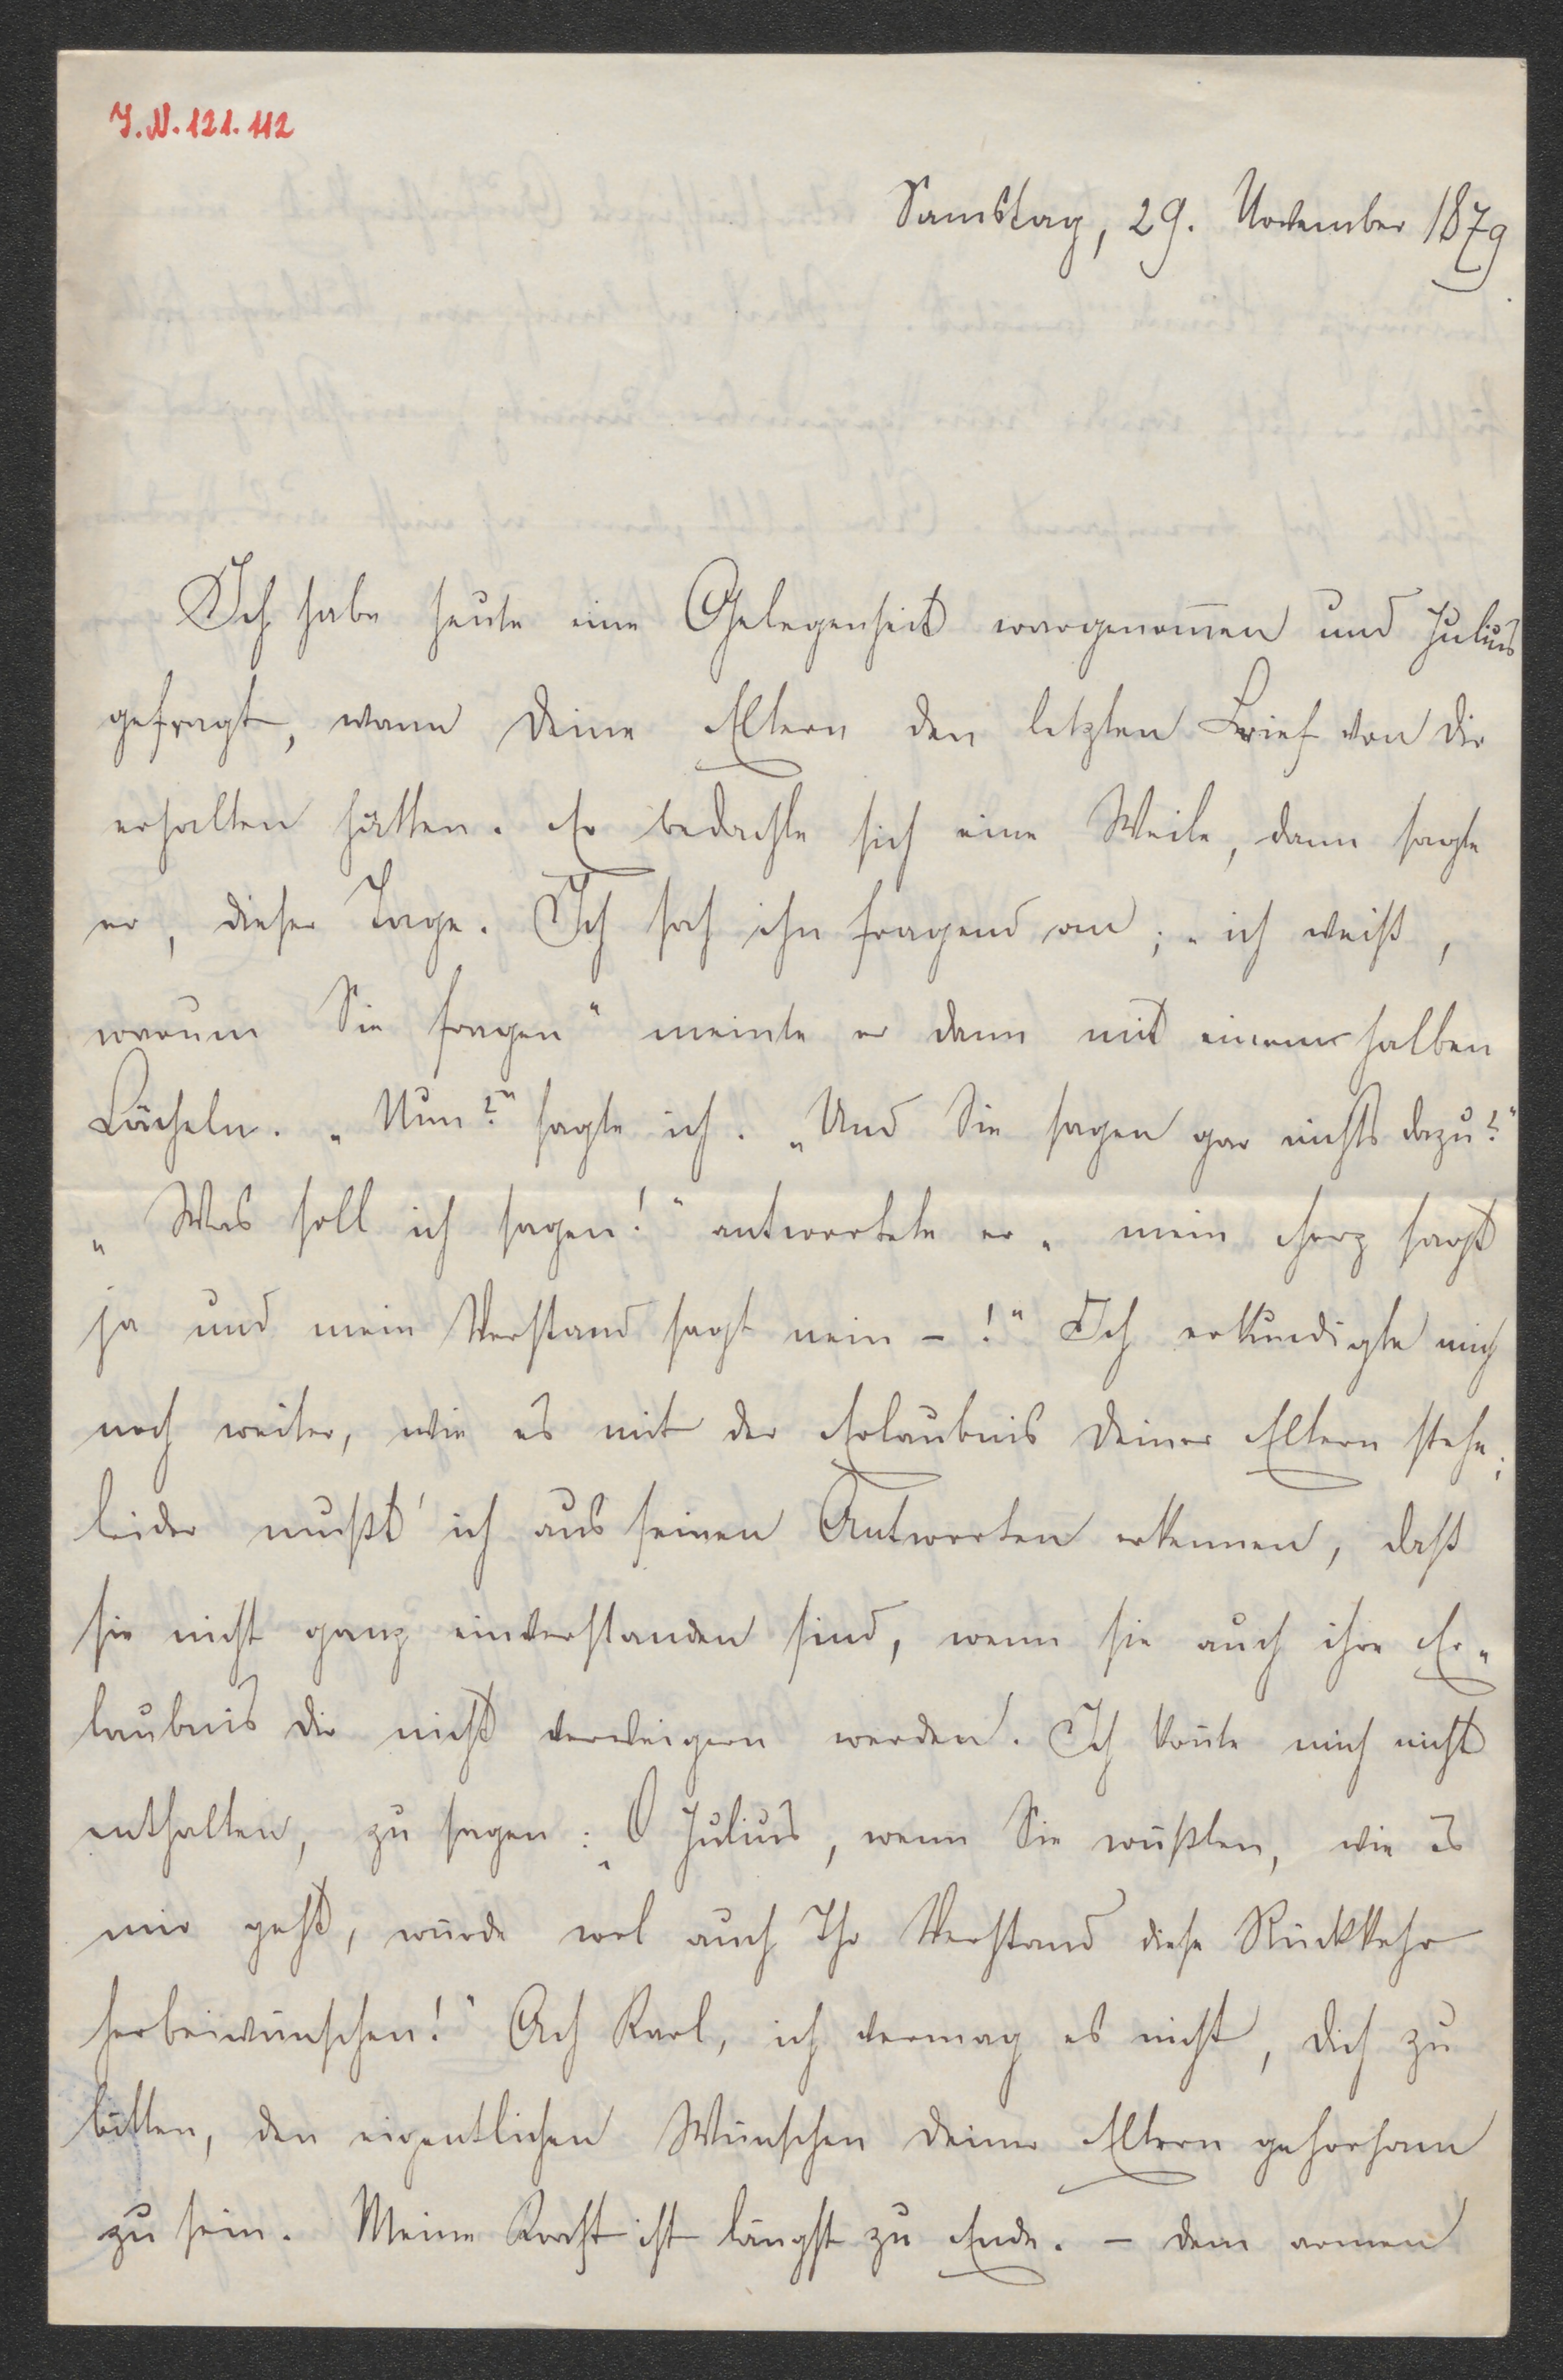 I.N. 121.112
Samstag, 29. November 1879
Ich habe heute eine Gelegenheit wargenom̅en und Julius
gefragt, wann Deine Eltern den letzten Brief von Dir
erhalten hätten. Er bedachte sich eine Weile, dann sagte
er, dieser Tage. Ich sah ihn fragend an; „ich weiß,
warum Sie fragen“ meinte er dann mit einem halben
Lächeln. „Nun?“ sagte ich. „Und Sie sagen gar nichts dazu?“
„Was soll ich sagen!“ antwortete er „mein Herz sagt
ja und mein Verstand sagt nein – !“ Ich erkundigte mich
noch weiter, wie es mit der Erlaubnis Deiner Eltern stehe;
leider mußt' ich aus seinen Antworten erkennen, daß
sie nicht ganz einverstanden sind, wenn sie auch ihre Er-
laubnis Dir nicht verweigern werden. Ich kon̅te mich nicht
enthalten, zu sagen: „O Julius, wenn Sie wüßten, wie es
mir geht, würde wol auch Ihr Verstand diese Rückkehr
herbeiwünschen!“ Ach Karl, ich vermag es nicht, Dich zu
bitten, den eigentlichen Wünschen Deiner Eltern gehorsam
zu sein. Meine Kraft ist längst zu Ende. – Dem armen